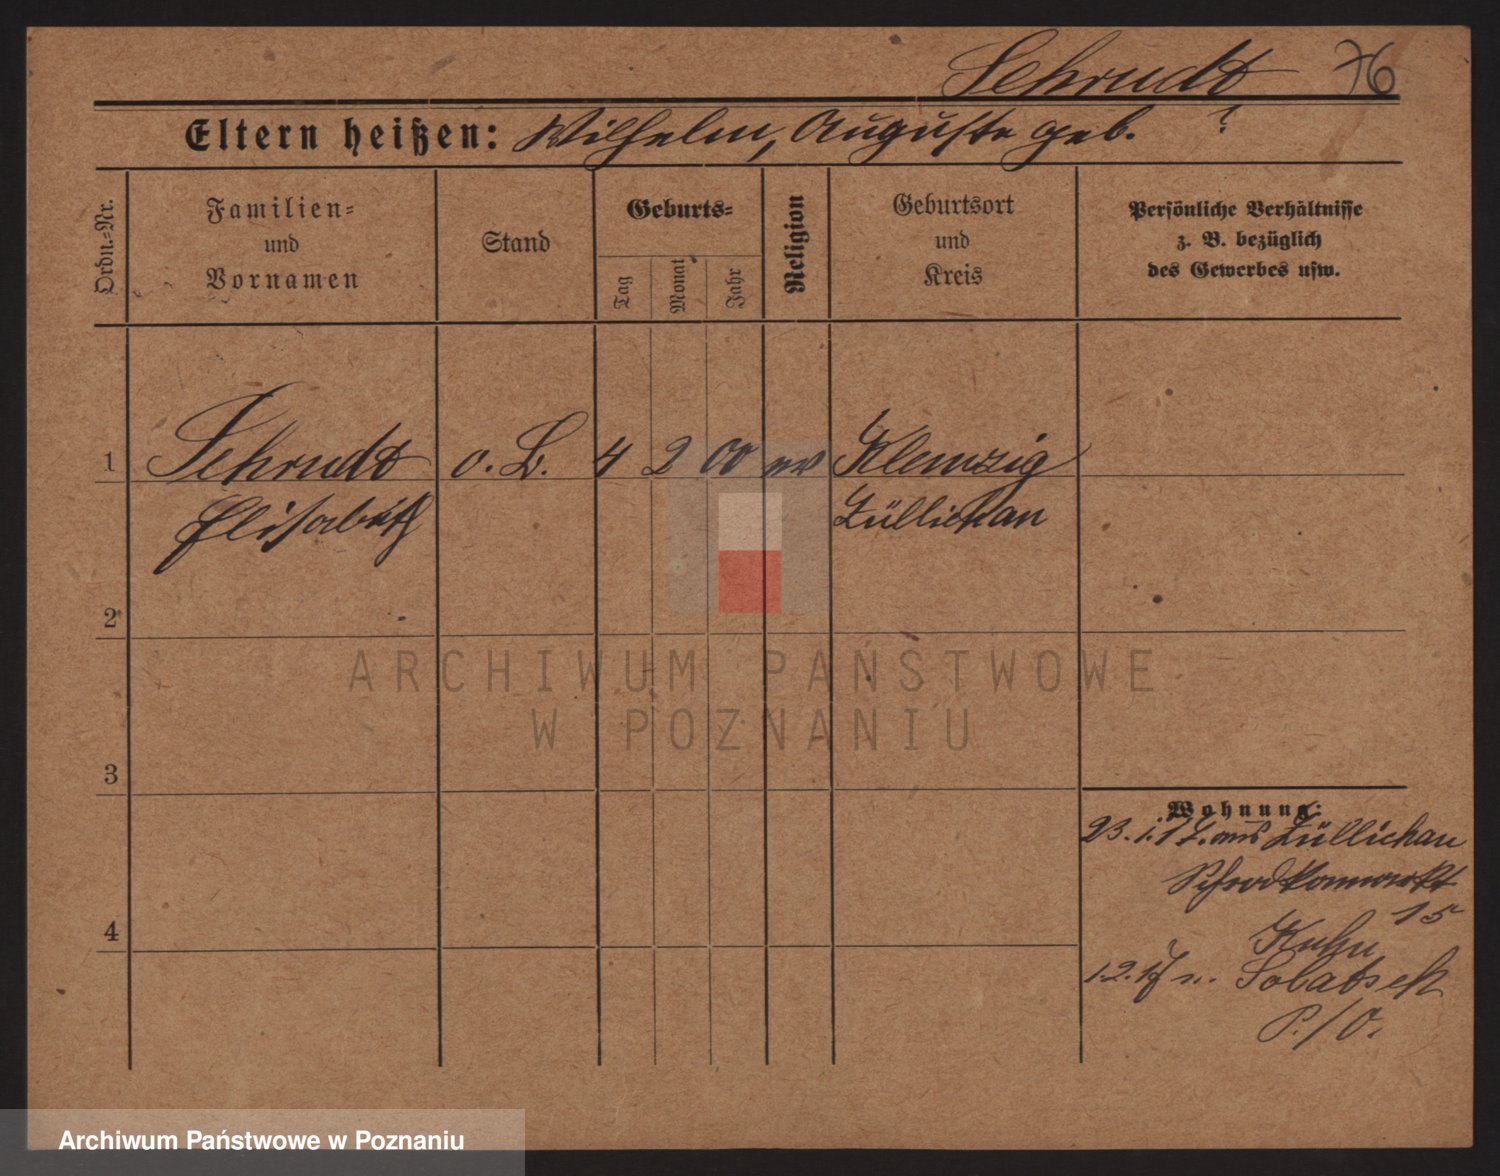 Sehrudt 76
Eltern heißen: Wilhelm, Auguste geb. ?
Ordn.-Nr.
Familien-
und
Vornamen
Stand
Geburts-
Tag
Monat
Jahr
Religion
Geburtsort
und
Kreis
Persönliche Verhältnisse
z. B. bezüglich
des Gewerbes usw.
1 Sehrudt o. B. 4 2 00 ev Klemzig
Elisabeth Züllichau
2
ARCHIWUM PAŃSTWOWE
W POZNANIU
3
Wohnung:
23. 1. 17. aus Züllichau
15
4
Kuhn
1.2.17 n.
P./O.
Archiwum Państwowe w Poznaniu